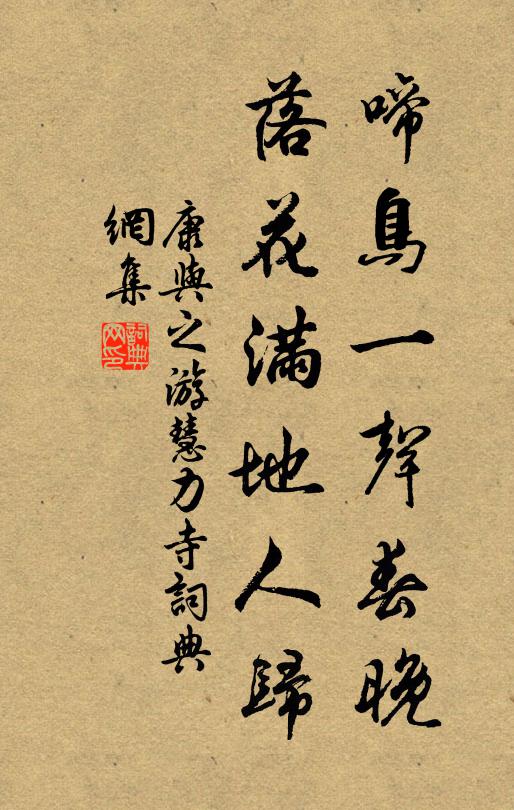 啼鳥一聲春晚
落花滿地人歸
康與之游慧力寺詞典
網集
詞典网印